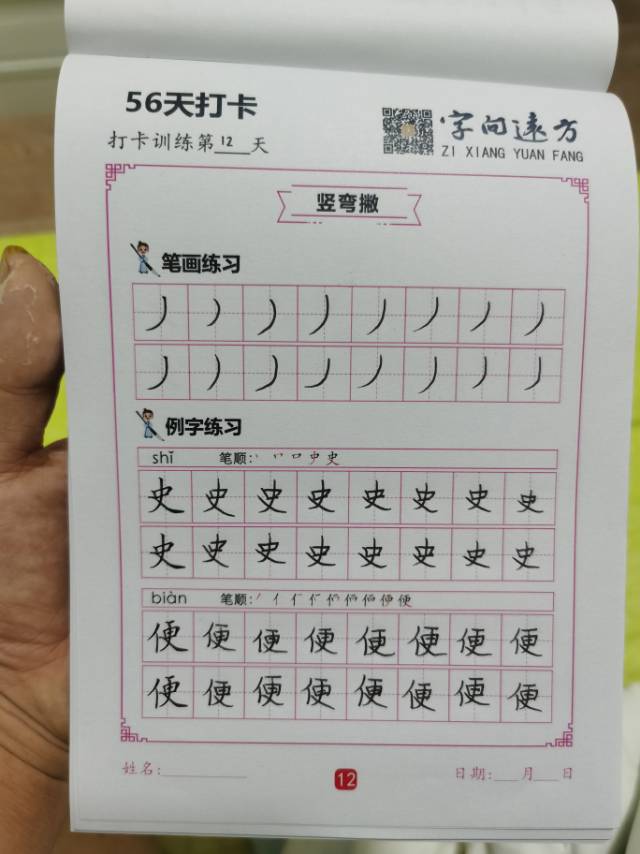 56天打卡
字向远方
打卡训练第12天
ZI XIANG YUAN FANG
竖弯撇
笔画练习
丿丿丿丿丿丿丿丿
丿丿丿丿丿丿丿丿
例字练习
shǐ 笔顺:
史史史史史史史史
史史史史史史史史
biàn 笔顺:
便便便便便便便便
便便便便便便便便
姓名:
12
日期: 月 日